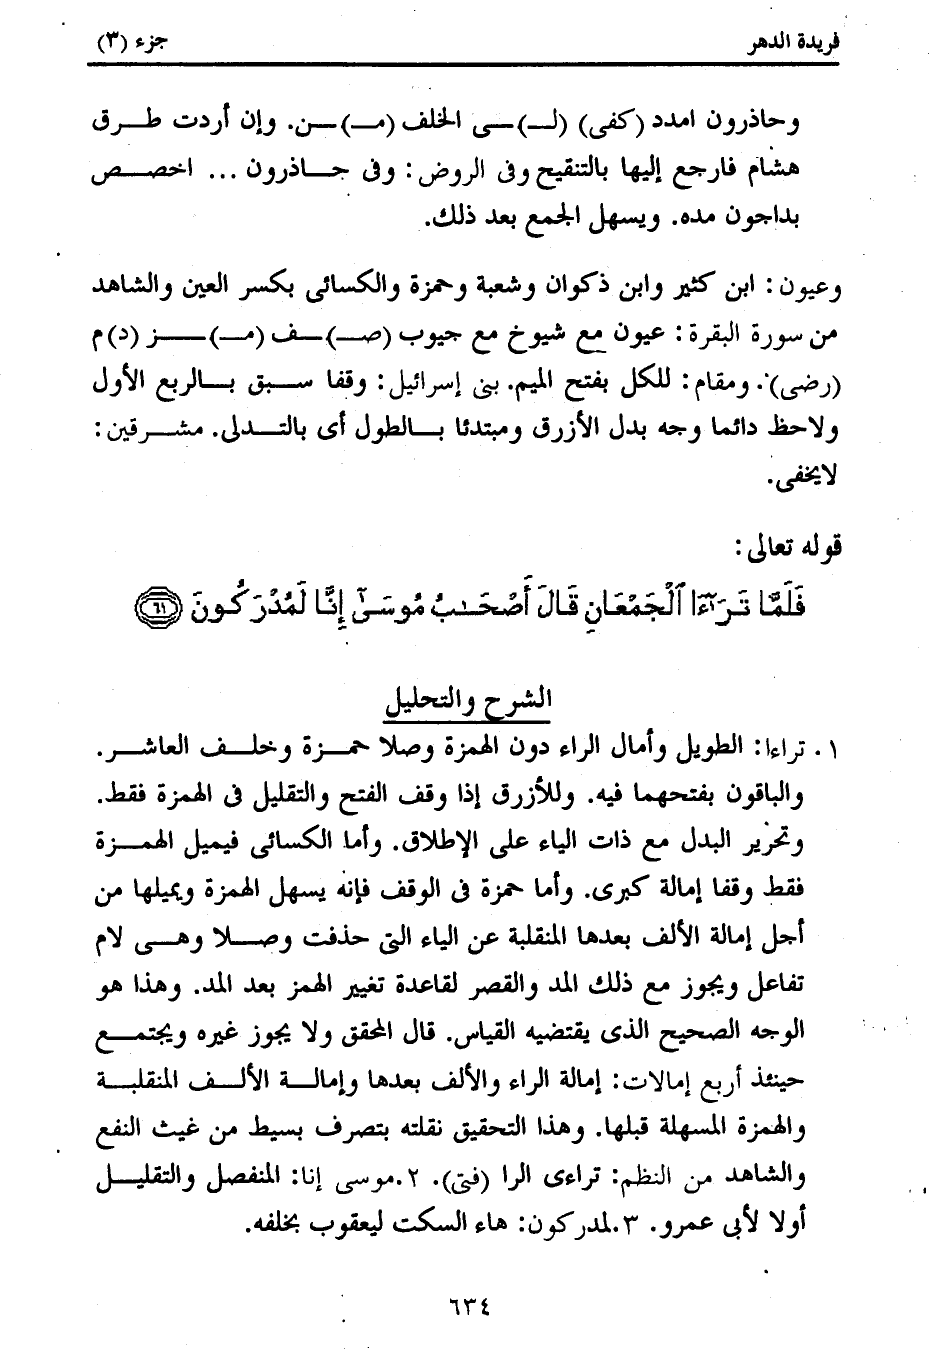 فريدة الدهر جزء (٣)
وحاذرون امدد (كفى) (لـ)ـى الخلف (مـ)ـن. وإن أردت طرق
هشام فارجع إليها بالتنقيح وفى الروض: وفى حاذرون ... اخصص
بداجون مده. ويسهل الجمع بعد ذلك.
وعيون: ابن كثير وابن ذكوان وشعبة وحمزة والكسائى بكسر العين والشاهد
من سورة البقرة: عيون مع شيوخ مع جيوب (صـ)ـف (مـ)ـز (د)م
(رضى). ومقام: للكل بفتح الميم. بنى إسرائيل: وقفا سبق بالربع الأول
ولاحظ دائما وجه بدل الأزرق ومبتدئا بالطول أى بالتدلى. مشرقين:
لايخفى.
قوله تعالى:
فَلَمَّا تَرَٰٓءَا ٱلْجَمْعَانِ قَالَ أَصْحَـٰبُ مُوسَىٰٓ إِنَّا لَمُدْرَكُونَ ٦١
الشرح والتحليل
١. تراءا: الطويل وأمال الراء دون الهمزة وصلا حمزة وخلف العاشر.
والباقون بفتحهما فيه. وللأزرق إذا وقف الفتح والتقليل فى الهمزة فقط.
وتحرير البدل مع ذات الياء على الإطلاق. وأما الكسائى فيميل الهمزة
فقط وقفا إمالة كبرى. وأما حمزة فى الوقف فإنه يسهل الهمزة ويميلها من
أجل إمالة الألف بعدها المنقلبة عن الياء التى حذفت وصلا وهى لام
تفاعل ويجوز مع ذلك المد والقصر لقاعدة تغيير الهمز بعد المد. وهذا هو
الوجه الصحيح الذى يقتضيه القياس. قال المحقق ولا يجوز غيره ويجتمع
حينئذ أربع إمالات: إمالة الراء والألف بعدها وإمالة الألف المنقلبة
والهمزة المسهلة قبلها. وهذا التحقيق نقلته بتصرف بسيط من غيث النفع
والشاهد من النظم: تراءى الرا (فتى). ٢.موسى إنا: المنفصل والتقليل
أولا لأبى عمرو. ٣.لمدركون: هاء السكت ليعقوب بخلفه.
٦٣٤